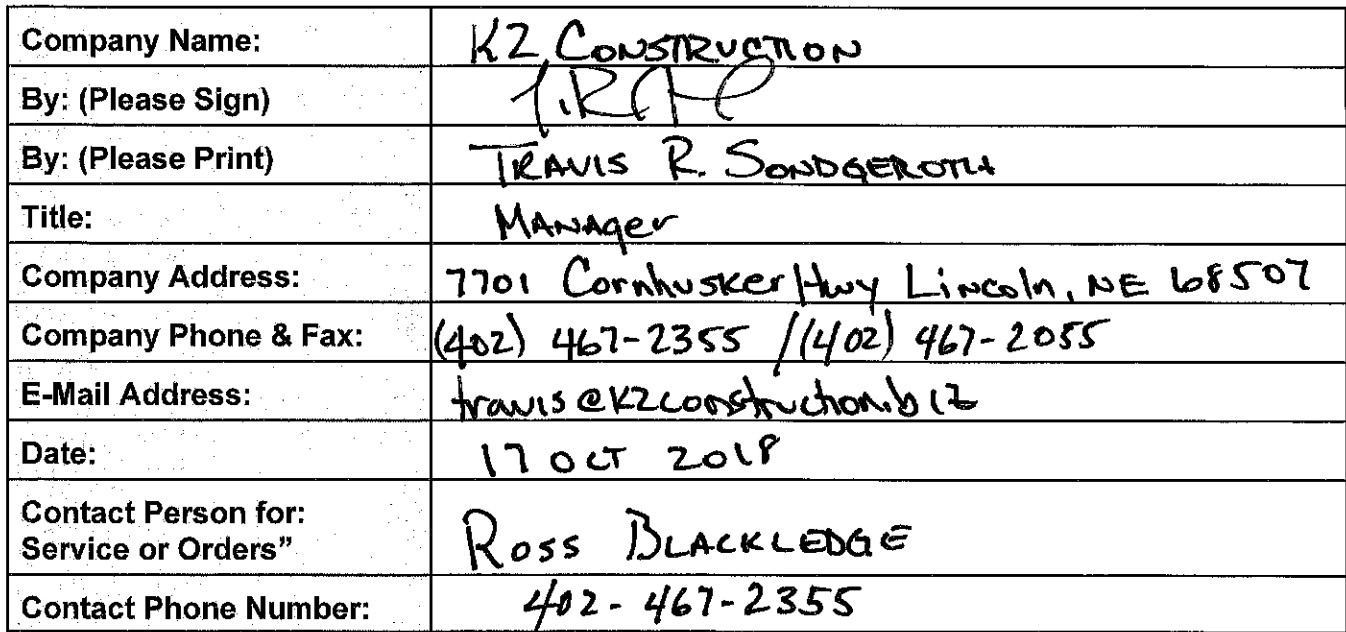 Company Name: K2 CONSTRUCTION
By: (Please Sign)
By: (Please Print) TRAVIS R. SONDGEROTH
Title: MANAGer
Company Address: 7701 Cornhusker Hwy Lincoln, NE 68507
Company Phone & Fax: (402) 467-2355 / (402) 467-2055
E-Mail Address: travis@k2construction.biz
Date: 17 OCT 2018
Contact Person for:
Service or Orders” ROSS BLACKLEDGE
Contact Phone Number: 402-467-2355